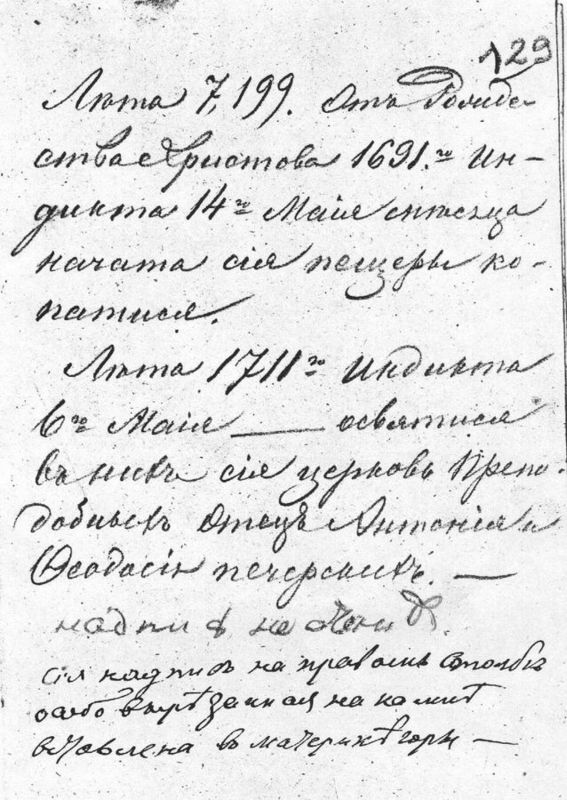 129
Лѣта 7,199. Отъ Рождe
ства Христова 1691.го Ин-
дикта 14го Маія мѣсяца
начата сія пещеры ко-
патися.
Лѣта 1711го Индикта
6го Маія — освятися
въ нихъ сія церковь Препо-
добныхъ Отецъ Антонія и
Ѳеодосія печерскихъ. —
надпись на
сія надпись на правомъ столбѣ
особо вырѣзанная на камнѣ
вставлена въ материкѣ горы —